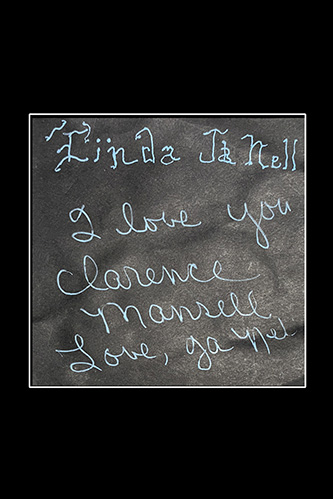 Linda Ja Nell
I love you
Clarence
Mansell
Love, Ja Nel